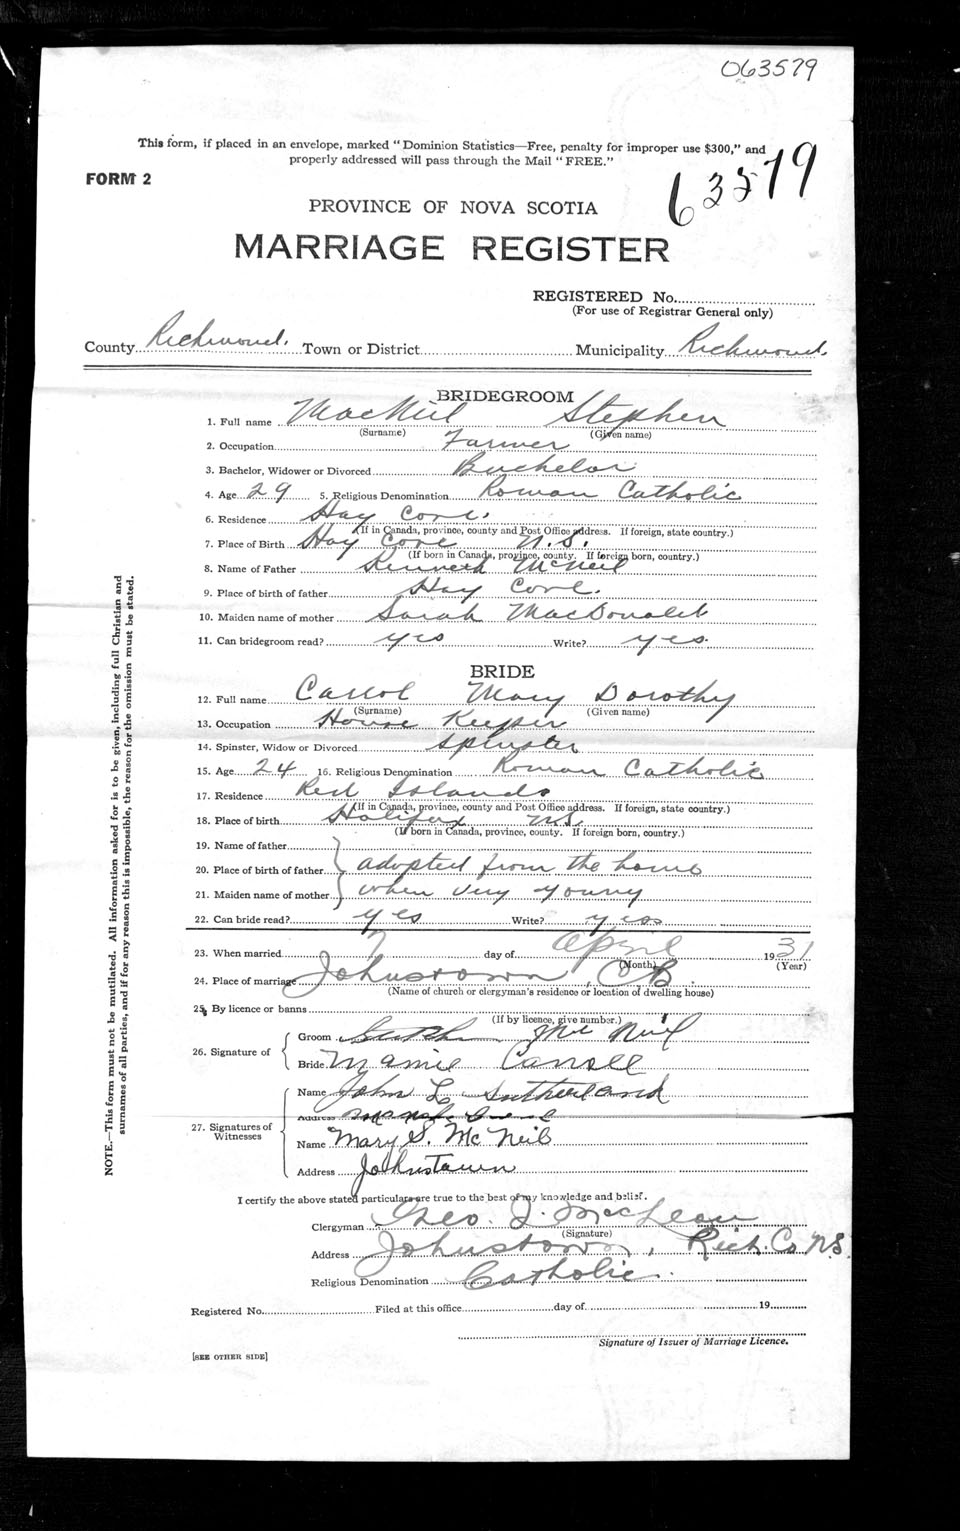 063579
This form, if placed in an envelope, marked "Dominion Statistics—Free, penalty for improper use $300," and
properly addressed will pass through the Mail "FREE."
63579
FORM 2
PROVINCE OF NOVA SCOTIA
MARRIAGE REGISTER
REGISTERED No.
(For use of Registrar General only)
County Richmond. Town or District Municipality Richmond.
BRIDEGROOM
1. Full name MacNeil Stephen
(Surname) (Given name)
2. Occupation Farmer
3. Bachelor, Widower or Divorced Bachelor
4. Age 29 5. Religious Denomination Roman Catholic
6. Residence Hay Cove.
(If in Canada, province, county and Post Office address. If foreign, state country.)
7. Place of Birth Hay Cove N.S.
(If born in Canada, province, county. If foreign born, country.)
8. Name of Father Kenneth McNeil
9. Place of birth of father Hay Cove.
10. Maiden name of mother Sarah MacDonald
11. Can bridegroom read? yes Write? yes.
BRIDE
12. Full name Carrol Mary Dorothy
(Surname) (Given name)
13. Occupation House Keeper
14. Spinster, Widow or Divorced Spinster
15. Age 24 16. Religious Denomination Roman Catholic
17. Residence Red Islands
(If in Canada, province, county and Post Office address. If foreign, state country.)
18. Place of birth Halifax N.S.
(If born in Canada, province, county. If foreign born, country.)
19. Name of father
20. Place of birth of father adopted from the home
21. Maiden name of mother when very young
22. Can bride read? yes Write? yes
23. When married 7 day of April 1931
(Month) (Year)
24. Place of marriage Johnstown, C.B.
(Name of church or clergyman's residence or location of dwelling house)
25. By licence or banns
(If by licence, give number.)
26. Signature of
Groom Mc Neil
Bride Mamie Carroll
27. Signatures of Witnesses
Name John L Sutherland
Address
Name Mary S. McNeil
Address Johnstown
I certify the above stated particulars are true to the best of my knowledge and belief.
Clergyman Geo. J. MacLean
(Signature)
Address Johnstown, Rich. Co. N.S.
Religious Denomination Catholic.
Registered No. Filed at this office day of 19
Signature of Issuer of Marriage Licence.
[SEE OTHER SIDE]
NOTE.—This form must not be mutilated. All information asked for is to be given, including full Christian and
surnames of all parties, and if for any reason this is impossible, the reason for the omission must be stated.